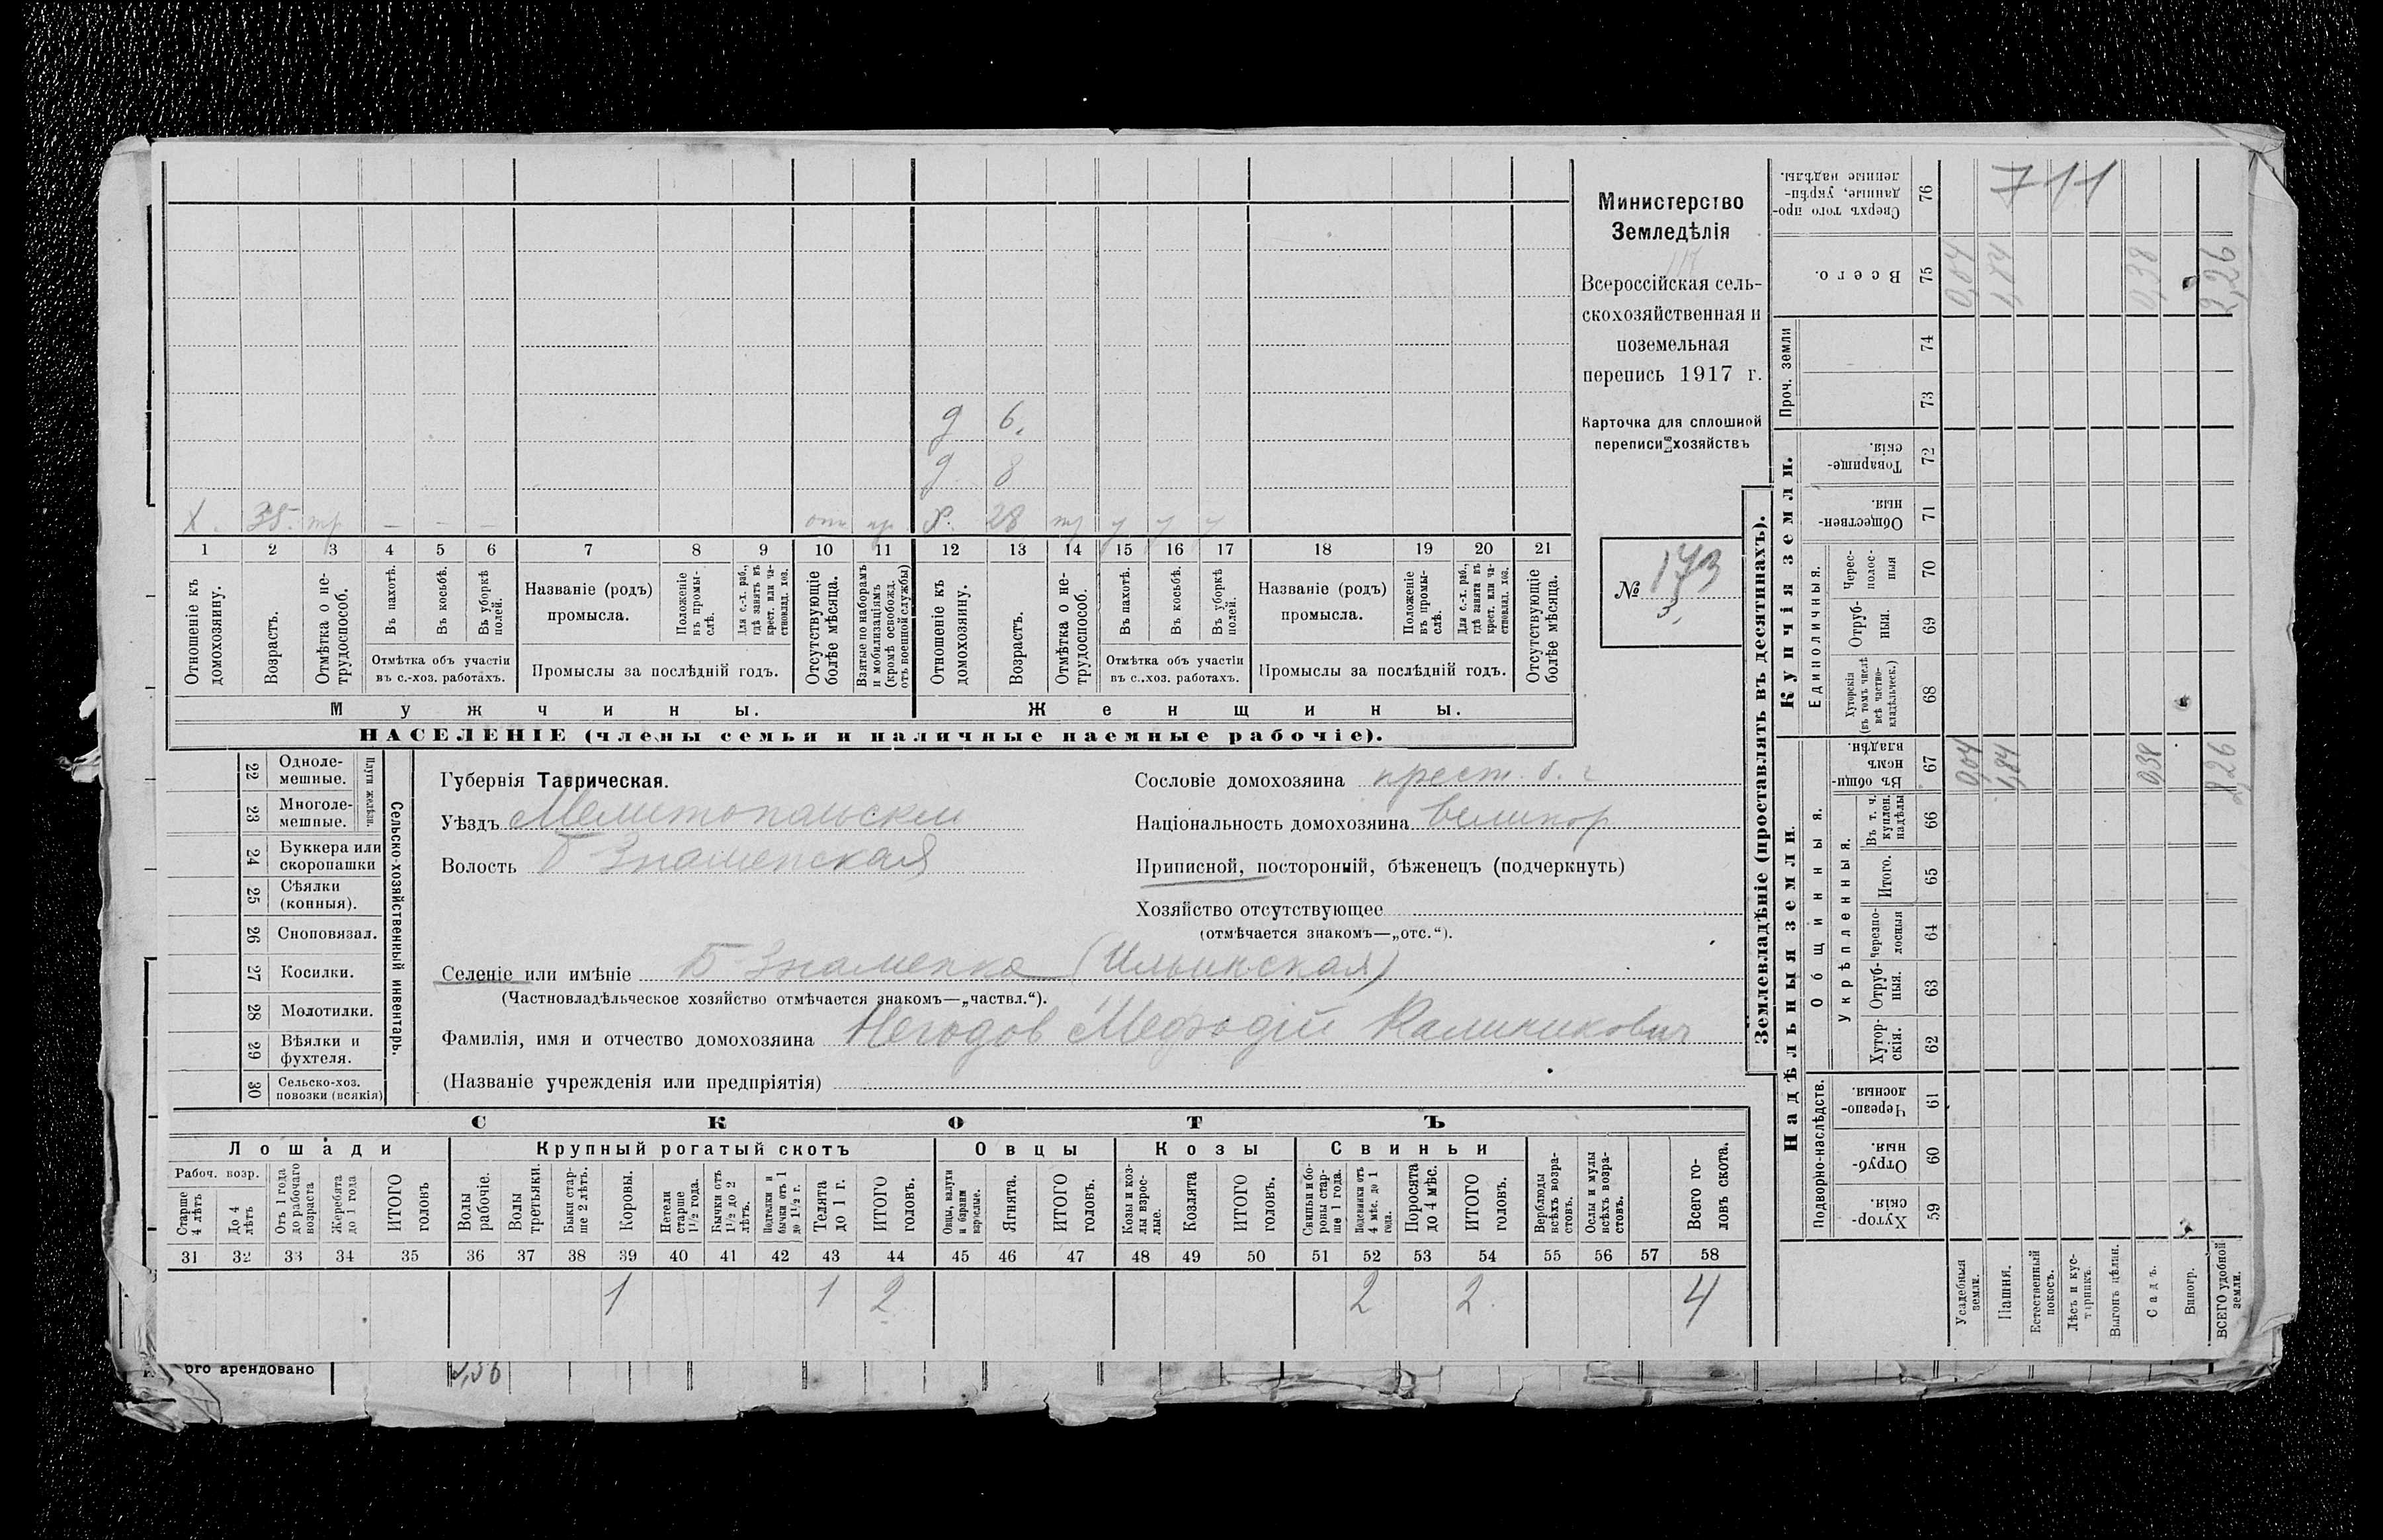 Министерство
Земледѣлія
Всероссійская сель-
скохозяйственная и
поземельная
перепись 1917 г.
Карточка для сплошной
переписи хозяйствъ
№ 173
3,
711
д 6.
д. 8
х. 38. тр — - — отс пр. х. 28 тр у у у
1 2 3 4 5 6 7 8 9 10 11 12 13 14 15 16 17 18 19 20 21
Отношеніе къ домохозяину.
Возрастъ.
Отмѣтка о не-трудоспособ.
Въ пахотѣ.
Въ косьбѣ.
Въ уборкѣ полей.
Отмѣтка объ участіи
въ с.-хоз. работахъ.
Названіе (родъ)
промысла.
Положеніе въ промы-слѣ.
Для с.-х. раб., гдѣ занятъ въ крест. или ча-стновлад. хоз.
Промыслы за послѣдній годъ.
Отсутствующіе болѣе мѣсяца.
Взятые по наборамъ и мобилизаціямъ (кромѣ освобожд. отъ военной службы)
Отношеніе къ домохозяину.
Возрастъ.
Отмѣтка о не-трудоспособ.
Въ пахотѣ.
Въ косьбѣ.
Въ уборкѣ полей.
Отмѣтка объ участіи
въ с..хоз. работахъ.
Названіе (родъ)
промысла.
Положеніе въ промы-слѣ.
Для с.-х. раб., гдѣ занята въ крест. или ча-стновлад. хоз.
Промыслы за послѣдній годъ.
Отсутствующіе болѣе мѣсяца.
Мужчины. Женщины.
НАСЕЛЕНІЕ (члены семьи и наличные наемные рабочіе).
Сельско-хозяйственный инвентарь.
Плуги желѣзн.
22 Одноле-мешные.
23 Многоле-мешные.
24 Буккера или скоропашки
25 Сѣялки (конныя).
26 Сноповязал.
27 Косилки.
28 Молотилки.
29 Вѣялки и фухтеля.
30 Сельско-хоз. повозки (всякія)
Губернія Таврическая.
Уѣздъ Мелитопольскій
Волость Б Знаменская
Сословіе домохозяина крест. б. г
Національность домохозяина великор
Приписной, посторонній, бѣженецъ (подчеркнуть)
Хозяйство отсутствующее
(отмѣчается знакомъ—„отс.“).
Селеніе или имѣніе Б-Знаменка (Ильинская)
(Частновладѣльческое хозяйство отмѣчается знакомъ—„частвл.“).
Фамилія, имя и отчество домохозяина Негодов Мефодій Калиникович
(Названіе учрежденія или предпріятія)
СКОТЪ
Лошади Крупный рогатый скотъ Овцы Козы Свиньи
Рабоч. возр.
Старше 4 лѣтъ
До 4 лѣтъ
Отъ 1 года до рабочаго возраста
Жеребята до 1 года
ИТОГО головъ
Волы рабочіе.
Волы третьяки.
Быки стар-ше 2 лѣтъ.
Коровы.
Нетели старше 1½ года.
Бычки отъ 1½ до 2 лѣтъ.
Подтелки и бычки отъ 1 до 1½ г.
Телята до 1 г.
ИТОГО головъ.
Овцы, валухи и бараны взрослые.
Ягнята.
ИТОГО головъ.
Козы и коз-лы взрос-лые.
Козлята
ИТОГО головъ.
Свиньи и бо-ровы стар-ше 1 года.
Подсвинки отъ 4 мѣс. до 1 года.
Поросята до 4 мѣс.
ИТОГО головъ.
Верблюды всѣхъ возра-стовъ.
Ослы и мулы всѣхъ возра-стовъ.
Всего го-ловъ скота.
31 32 33 34 35 36 37 38 39 40 41 42 43 44 45 46 47 48 49 50 51 52 53 54 55 56 57 58
1 1 2 2 2. 4
ого арендовано
Землевладѣніе (проставлять въ десятинахъ).
Надѣльныя земли. Купчія земли.
Подворно-наслѣдств.
Общинныя.
Укрѣпленныя.
Единоличныя.
Проч. земли
59 Хутор-скія.
60 Отруб-ныя.
61 Черезпо-лосныя.
62 Хутор-скія.
63 Отруб-ныя.
64 Черезпо-лосныя
65 Итого.
66 Въ т. ч. куплен. надѣлы
67 Въ общи-номъ владѣн.
68 Хуторскія (въ томъ числѣ всѣ частно-владѣльческ.)
69 Отруб-ныя.
70 Черес-полос-ныя
71 Обществен-ныя.
72 Товарище-скія.
73
74
75 Всего.
76 Сверхъ того про-данные, укрѣп-ленные надѣлы.
Усадебныя земли. 0,04 0,04
Пашня. 1,84 1,84
Естественный покосъ.
Лѣсъ и кус-тарникъ.
Выгонъ цѣлин.
Садъ. 0,38 0,38
Виногр.
ВСЕГО удобной земли. 2,26 2,26